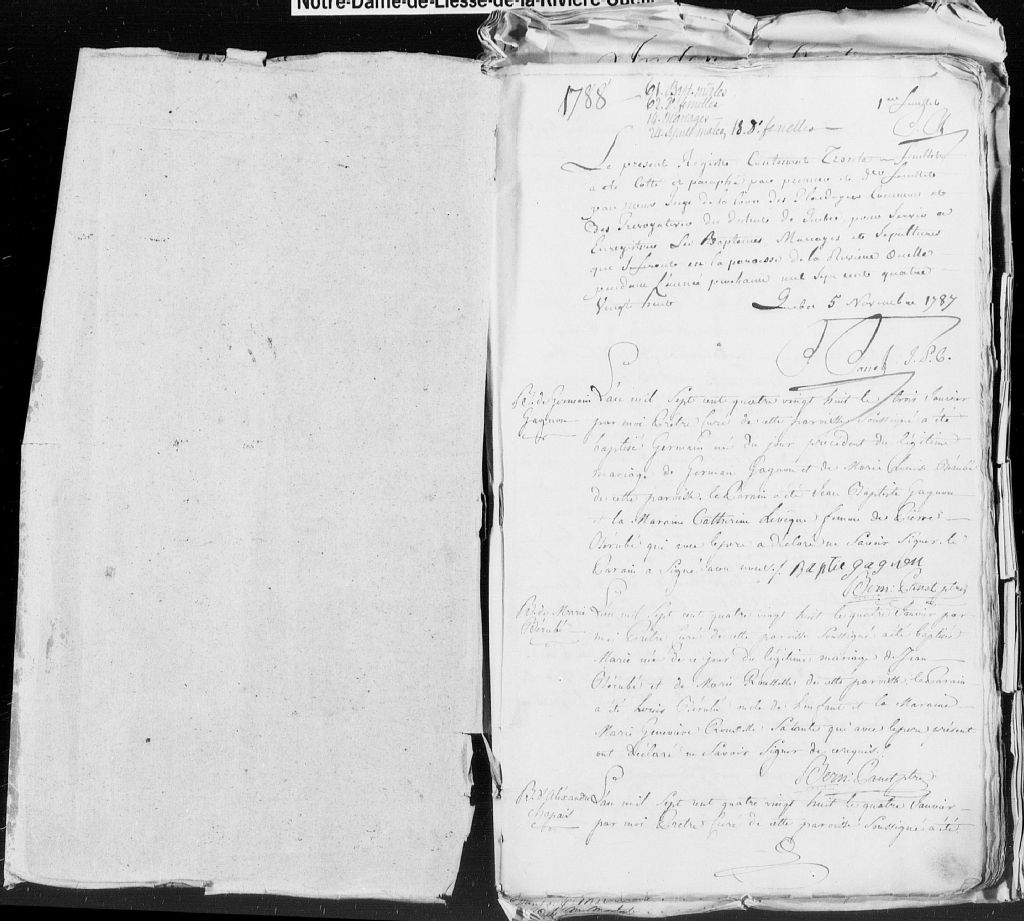 Notre-Dame-de-Liesse-de-la-Rivière-Ouelle
1788
61. Bapt. mâles
62. d° femelles
14. Mariages
24. Sepult. males, 18. d° femelles
1er feuillet
Le present Registre Contenant Trente feuillets
a été Cotté et paraphé par premier et der feuillets
par nous Juge de la Cour des Plaidoyers Communs
du district de Quebec, pour servir a
Enregistrer Les Baptemes, Mariages et Sepultures
que se feront en la paroisse de la Riviere Ouelle
pendant L'année prochaine mil sept cent quatre
Vingt huit Quebec 5 Novembre 1787
Panet J.P.C.
B. de Germain
Gagnon
L'an mil sept cent quatre vingt huit le trois Janvier
par moi Prêtre Curé de cette paroisse soussigné a été
baptisé Germain né du jour precedent du légitime
mariage de Germain Gagnon et de Marie Louise Bérubé
de cette paroisse. le Parain a été Jean Baptiste Gagnon
et la Maraine Catherine Levêque femme de Pierre
Bérubé qui avec le pere a déclaré ne savoir signer. le
Parain a signé avec nous. Baptis gagnon
Bern: Panet ptre
B. de Marie
Bérubé
L'an mil sept cent quatre vingt huit le quatre Janvier par
moi Prêtre Curé de cette paroisse soussigné a été baptisée
Marie née de ce jour du légitime mariage de Jean
Bérubé et de Marie de cette paroisse. le Parain
a été Louis Bérubé oncle de l'enfant et la Maraine
Marie Geneviève sa tante qui avec le pere présent
ont déclaré ne savoir signer de ce requis.
Bern: Panet ptre
B. d'Alexandre
L'an mil sept cent quatre vingt huit le quatre Janvier
par moi Prêtre Curé de cette paroisse soussigné a été